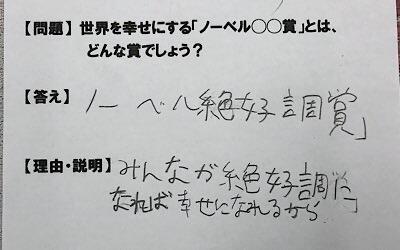 【問題】 世界を幸せにする「ノーベル○○賞」とは、
どんな賞でしょう？
【答え】 ノーベル絶好調賞」
【理由・説明】 みんなが絶好調に
なれば幸せになれるから」